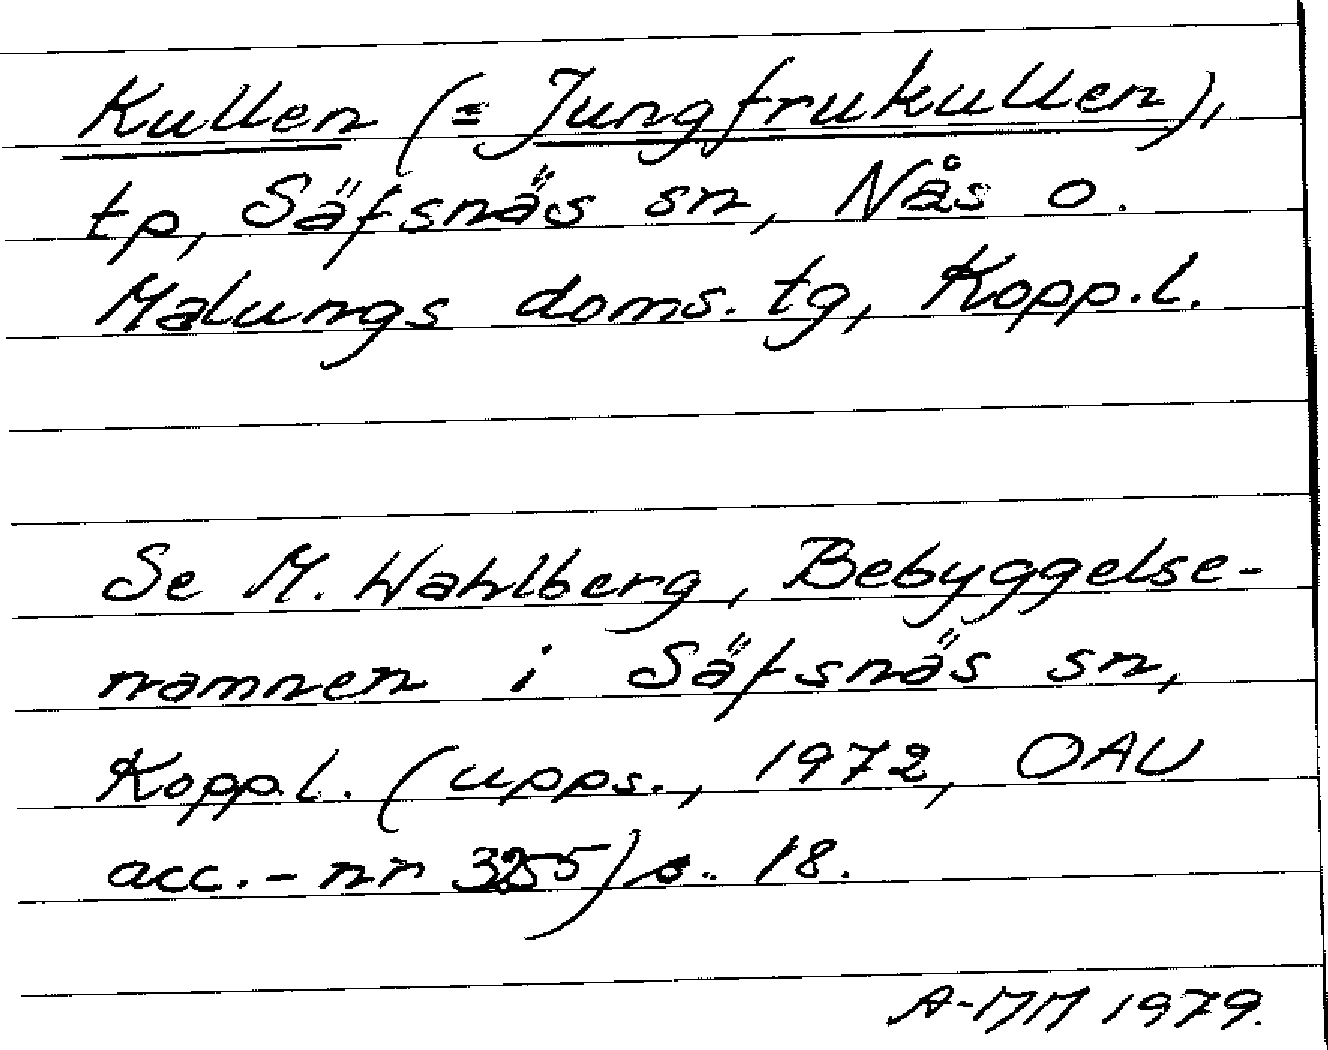 Kullen (= Jungfrukullen),
tp, Säfsnäs sn, Nås o.
Malungs doms. tg, Kopp.l.
Se M. Wahlberg, Bebyggelse-
namnen i Säfsnäs sn,
Kopp.l. (upps., 1972, OAU
acc.-nr 3255) s. 18.
A-MM 1979.